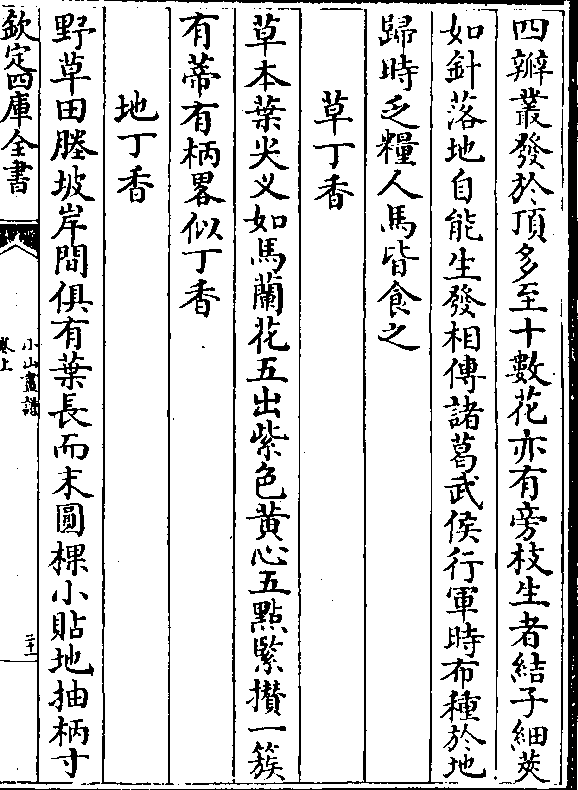 四瓣叢發於頂多至十數花亦有旁枝生者結子細莢
如針落地自能生發相傳諸葛武侯行軍時布種於地
歸時乏糧人馬皆食之
草丁香
草本葉尖义如馬蘭花五出紫色黄心五點緊攅一簇
有蒂有柄畧似丁香
地丁香
野草田塍坡岸間俱有葉長而末圓棵小貼地抽柄寸
欽定四庫全書
小山畫譜
卷上
二十一